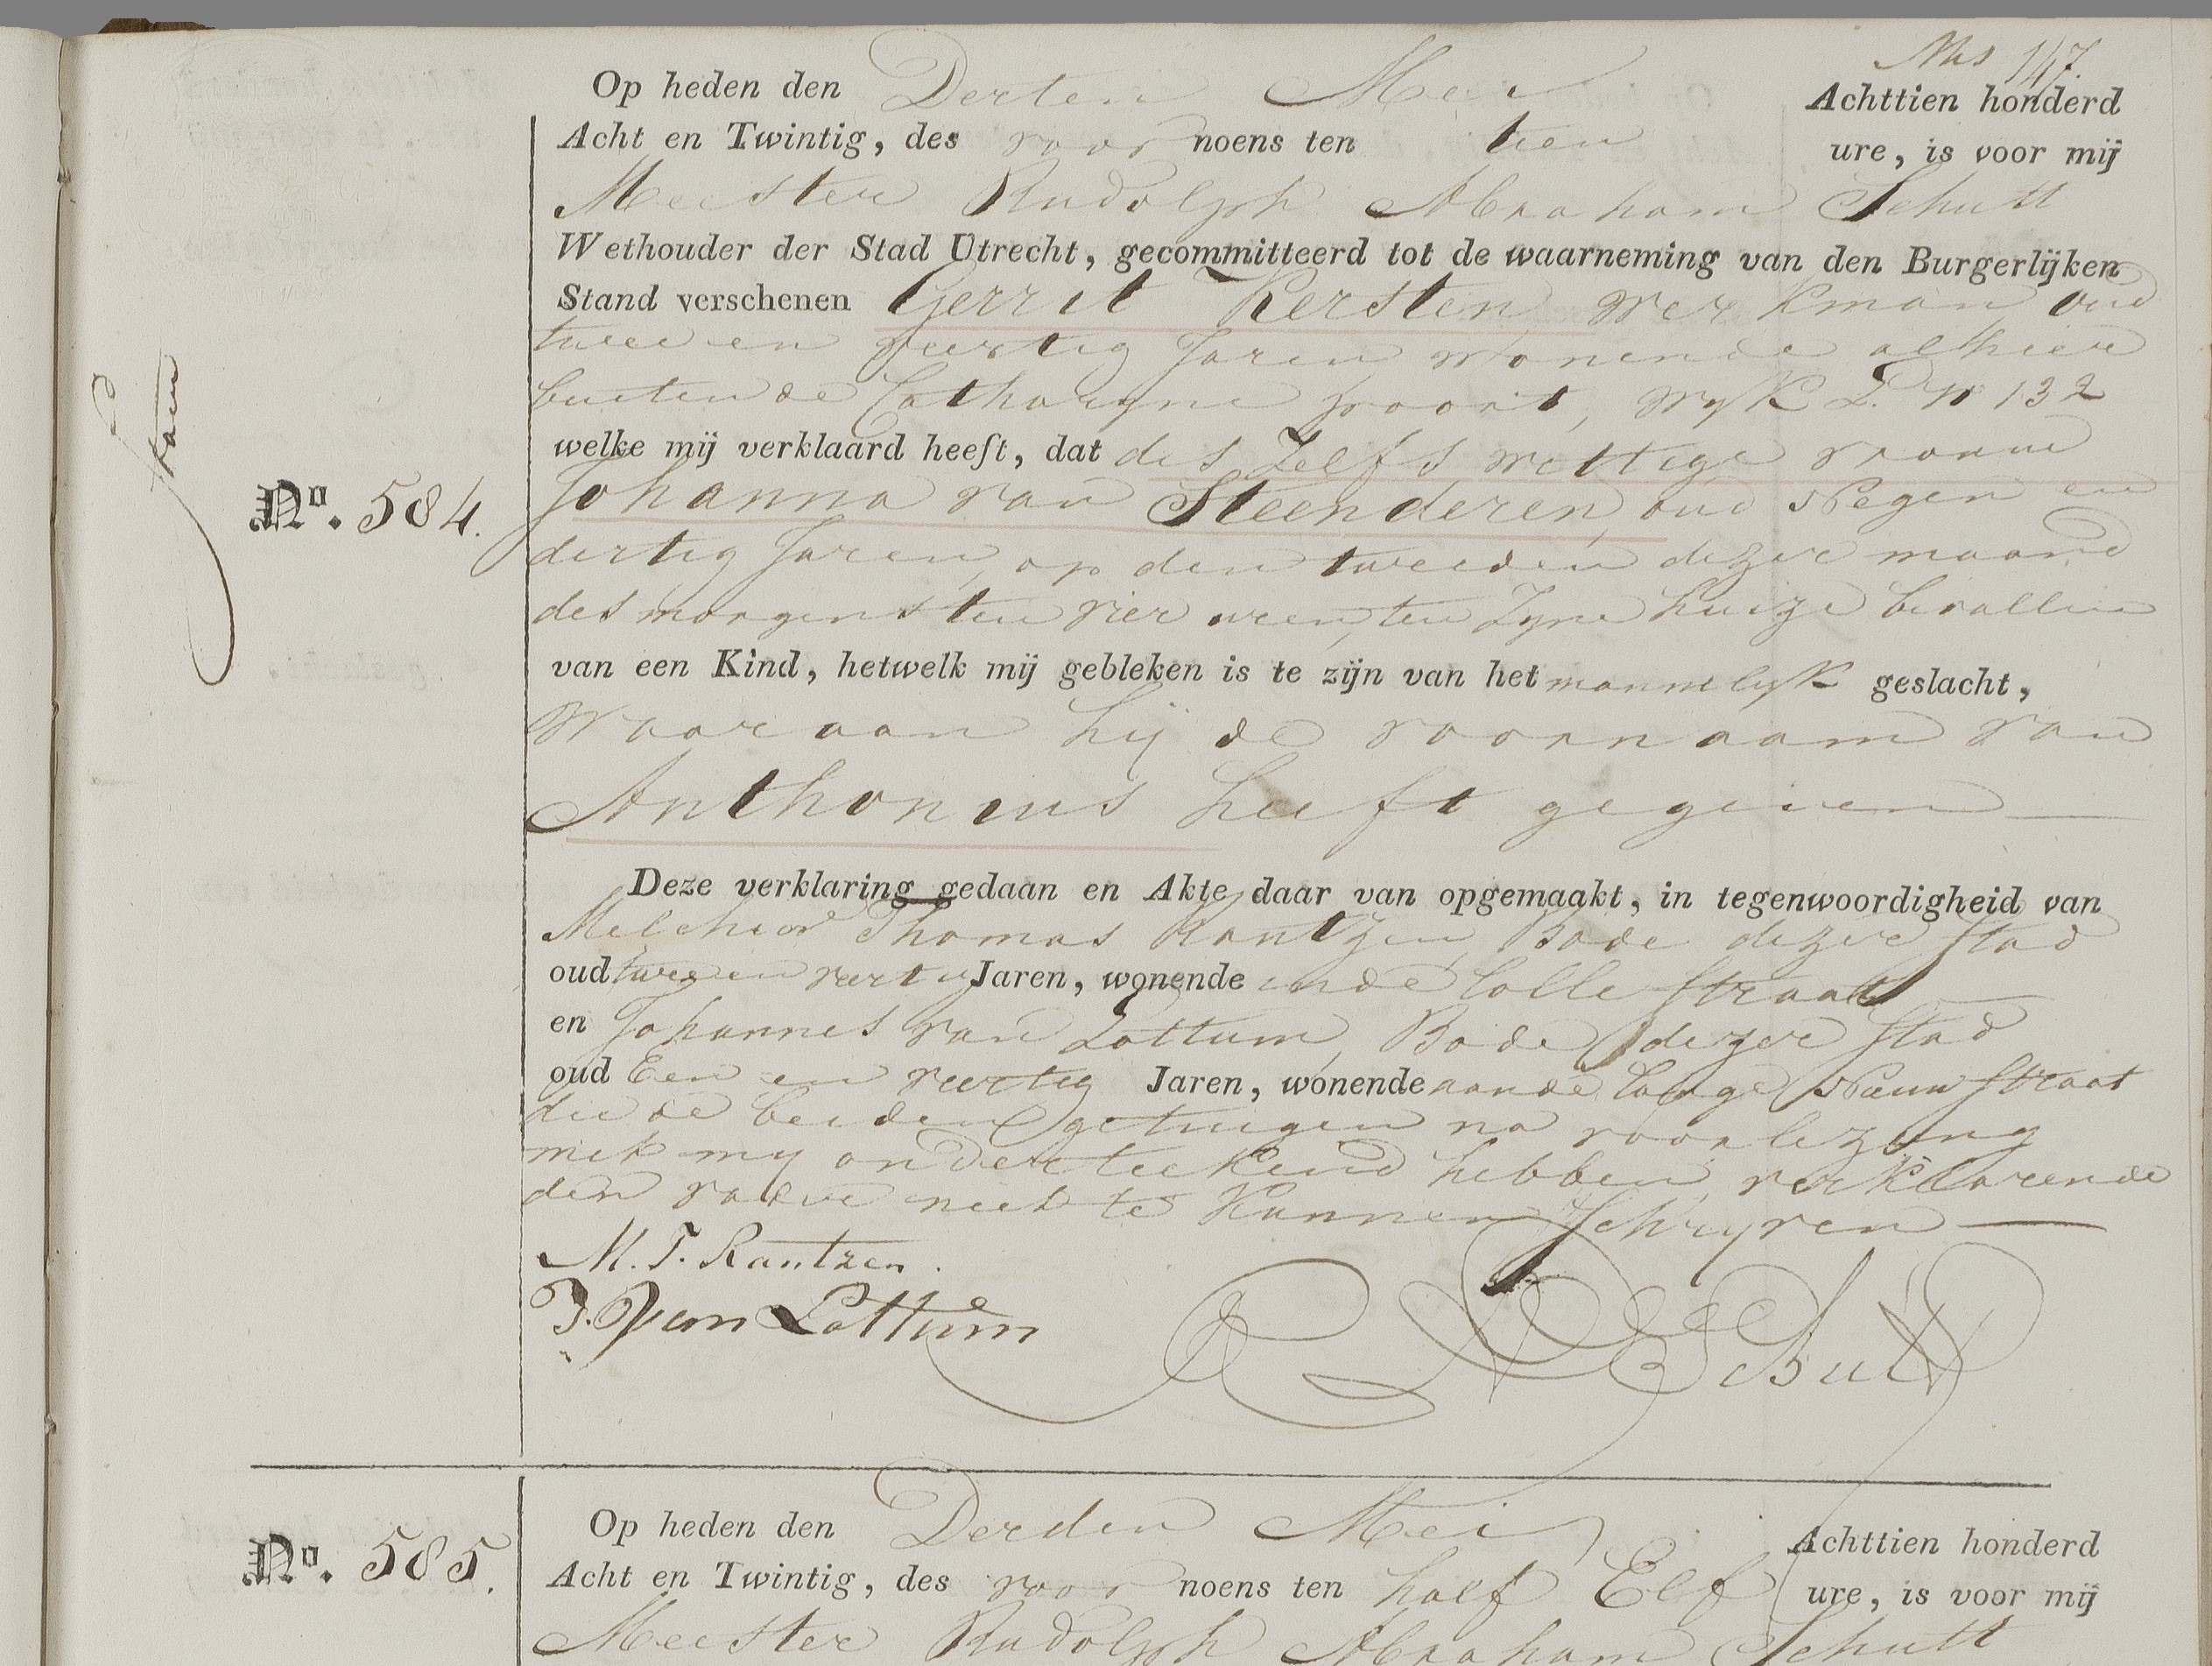 147.
Op heden den Derten Mei Achttien honderd
Acht en Twintig, des voor noens ten tien ure, is voor mij
Meester Rudolph Abraham Schutt
Wethouder der Stad Utrecht, gecommitteerd tot de waarneming van den Burgerlijken
Stand verschenen Gerrit Kersten werkman oud
twee en veertig Jaren wonende alhier
buiten de Catharyne poort, wyk L. No 132
welke mij verklaard heeft, dat des Zelfs wettige vrouw
No. 584. Johanna van Steenderen, oud Negen en
dertig Jaren, op den tweeden dezer maand
des morgens ten vier uren, ten Zyne huize bevallen
van een Kind, hetwelk mij gebleken is te zijn van het mannelyk geslacht,
Waar aan hij de voornaam van
Anthonius heeft gegeven
Deze verklaring gedaan en Akte daar van opgemaakt, in tegenwoordigheid van
Melchior Thomas Rantzen, Bode dezer stad
oud twee en veertig Jaren, wonende in de Lolle straat
en Johannes van Lottum, Bode dezer stad
oud Een en veertig Jaren, wonende aan de Lange Nieuw straat
die de beiden getuigen na voorlezing
met my onderteekend hebben, verklarende
den vader niet te kunnen schryven
M. T. Rantzen.
J. Van Lottum
R A Schutt
Op heden den Derden Mei Achttien honderd
No. 585. Acht en Twintig, des voor noens ten half Elf ure, is voor mij
Meester Rudolph Abraham Schutt